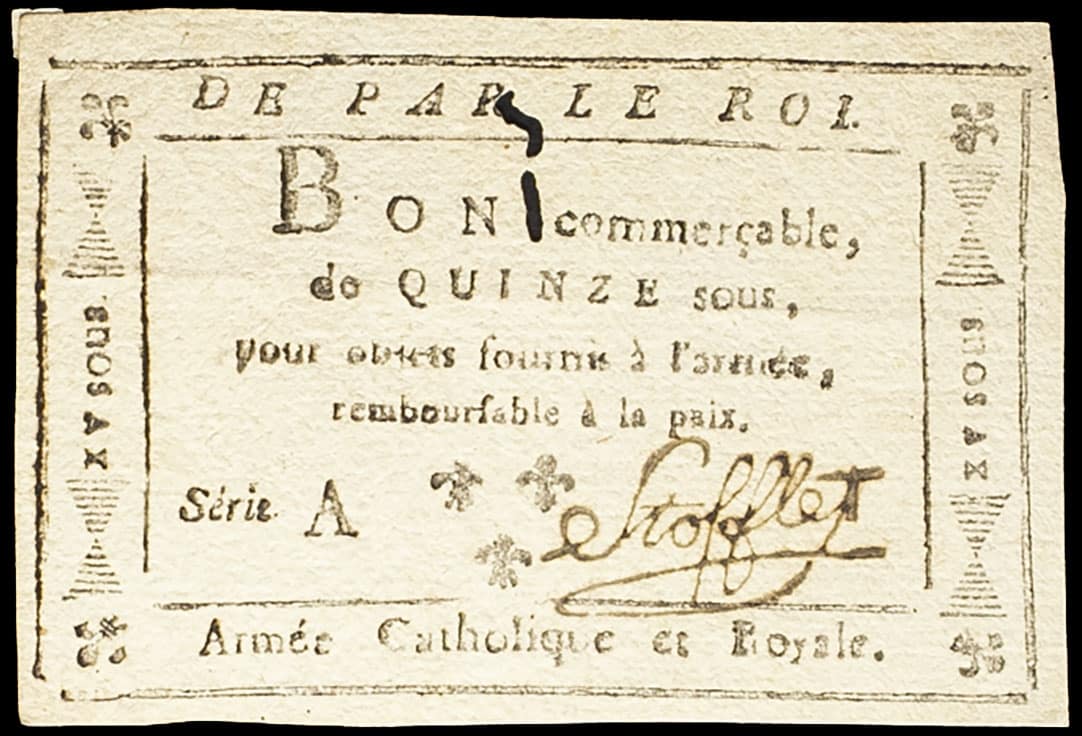 DE PAR LE ROI.
BON commerçable,
de QUINZE sous,
pour objets fournis à l'armée,
remboursable à la paix.
Série A
Stofflet
Armée Catholique et Royale.
XV SOUS
XV SOUS